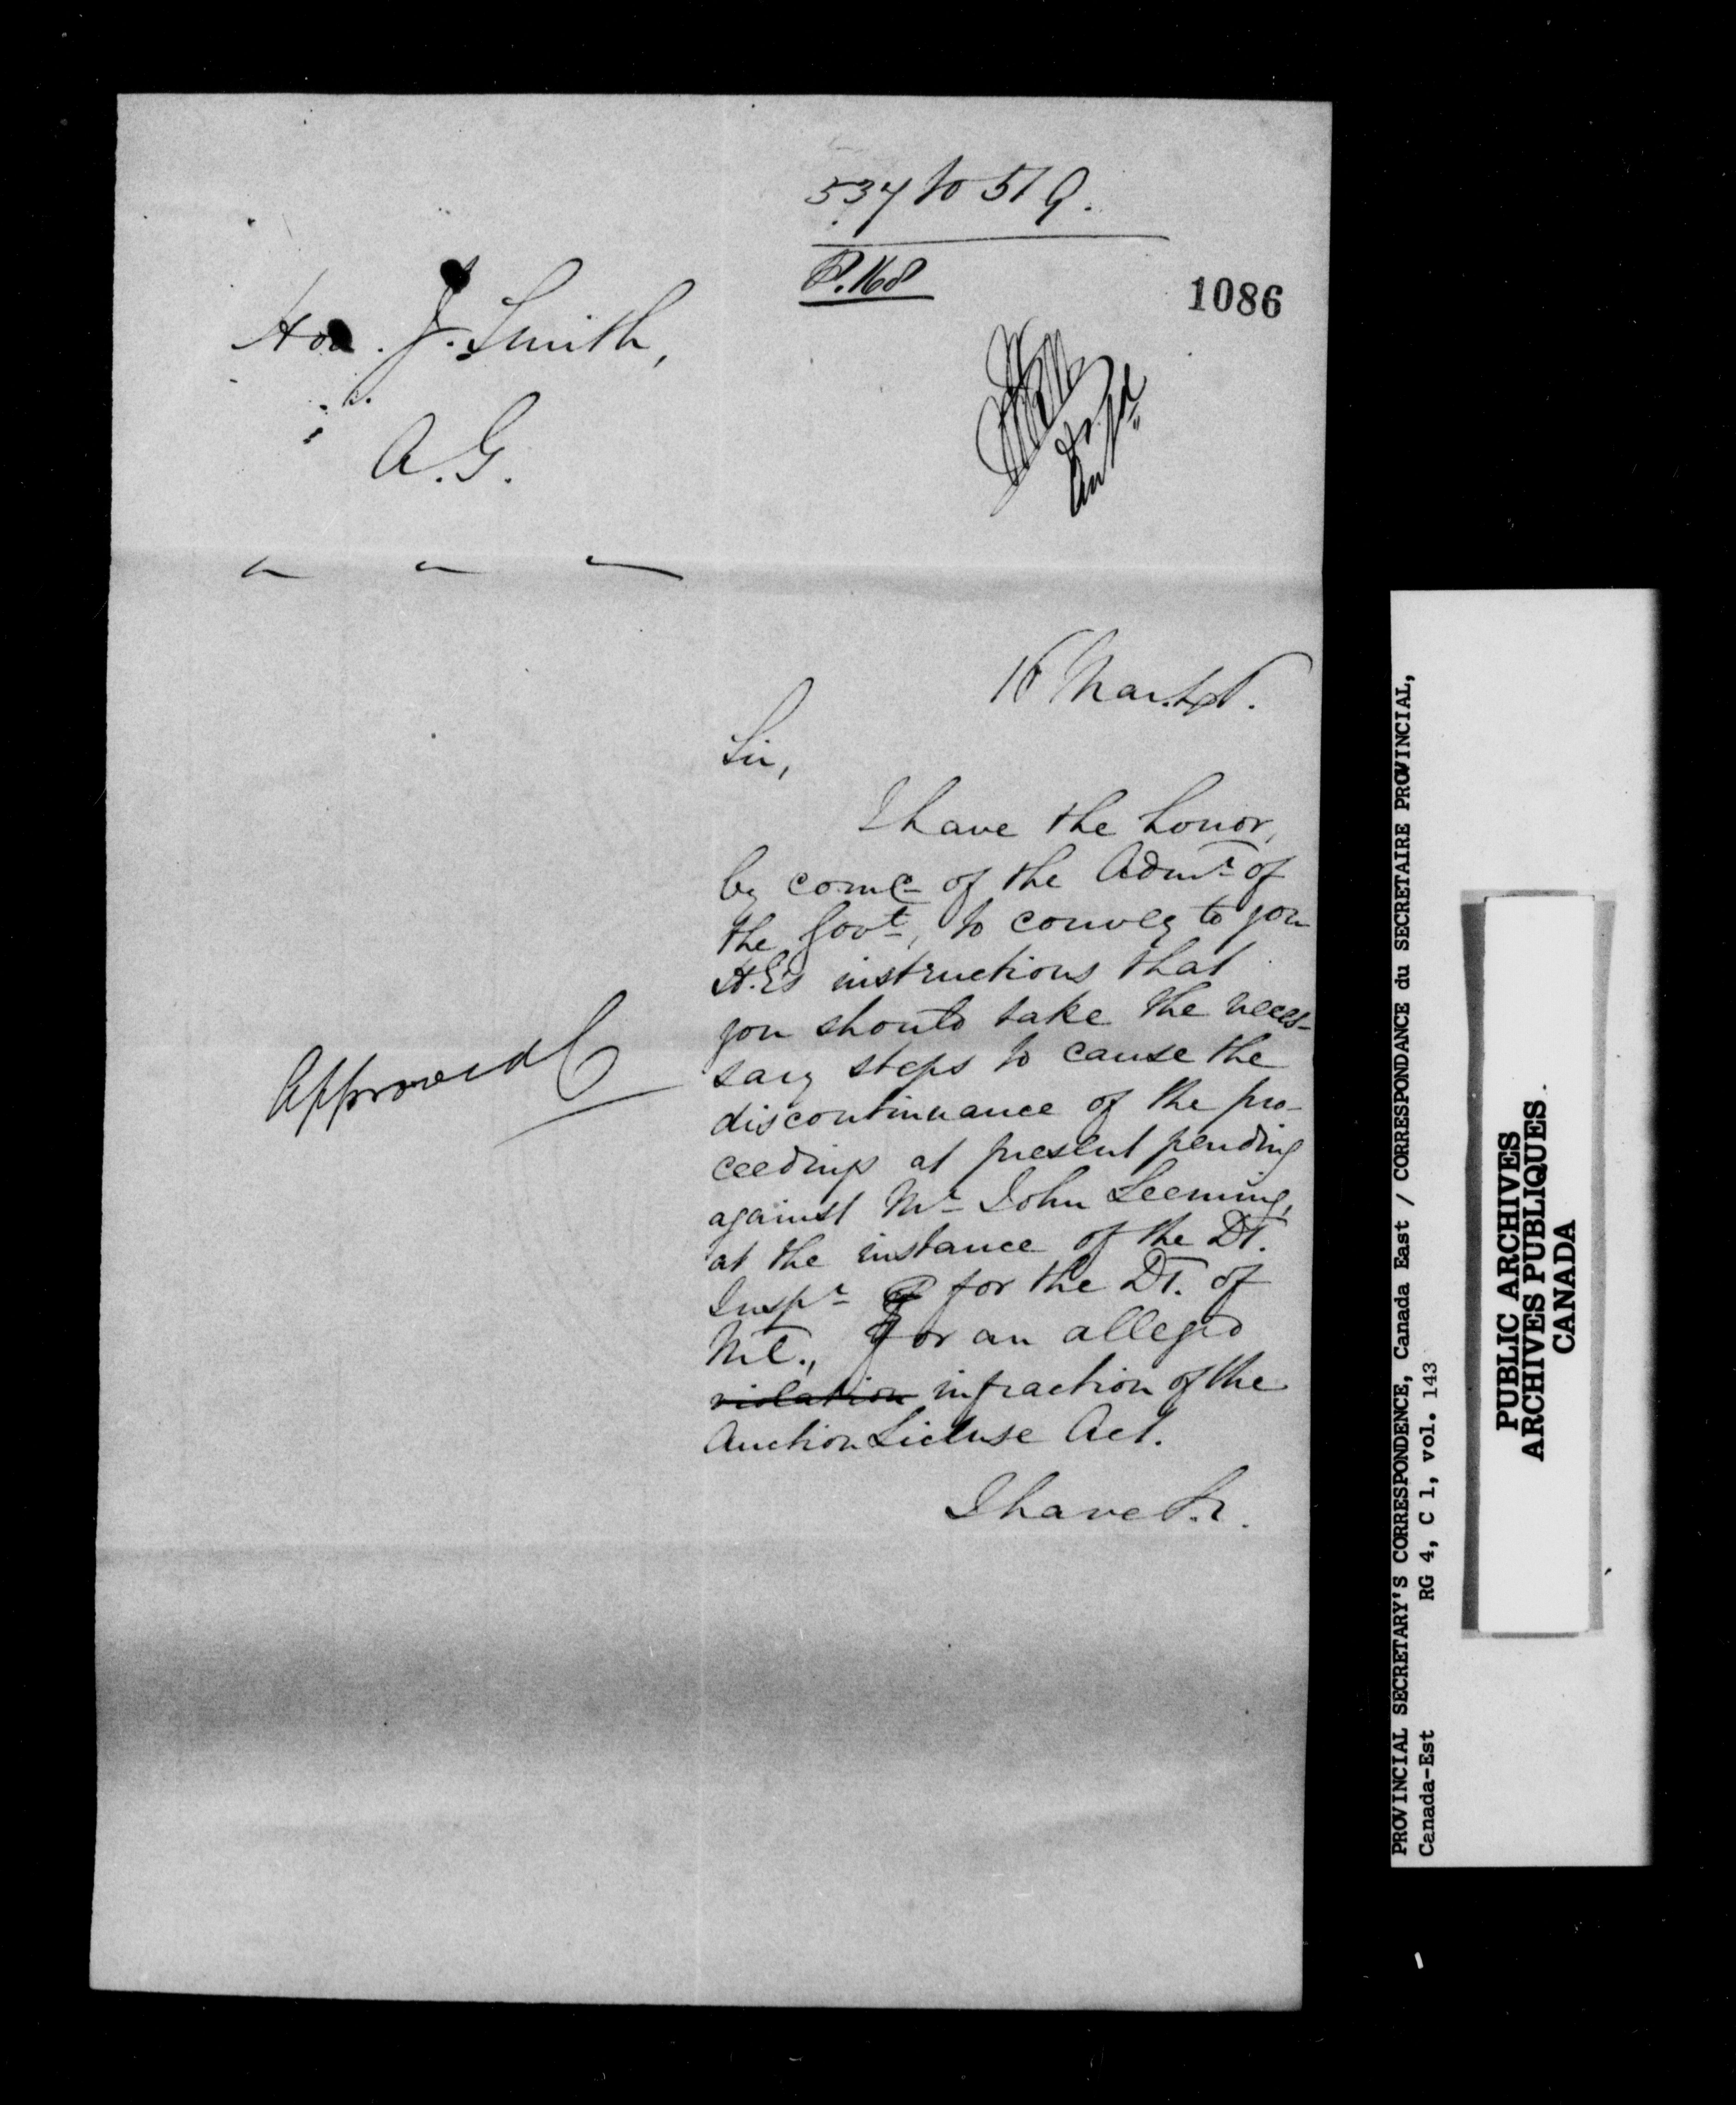 537 to 51 G.
P. 168
1086
Hon. J. Smith,
A.G.
16 Mar. 46.
Sir,
I have the honor,
by comd of the Admr of
the Govt, to convey to you
H.E's instructions that
you should take the neces-
sary steps to cause the
discontinuance of the pro-
ceedings at present pending
against Mr John Leeming,
at the instance of the Dt.
Inspr for the Dt. of
Ml., for an alleged
violation infraction of the
Auction License Act.
I have &c.
Approved C
PROVINCIAL SECRETARY'S CORRESPONDENCE, Canada East / CORRESPONDANCE du SECRETAIRE PROVINCIAL,
Canada-Est RG 4, C 1, vol. 143
PUBLIC ARCHIVES
ARCHIVES PUBLIQUES
CANADA